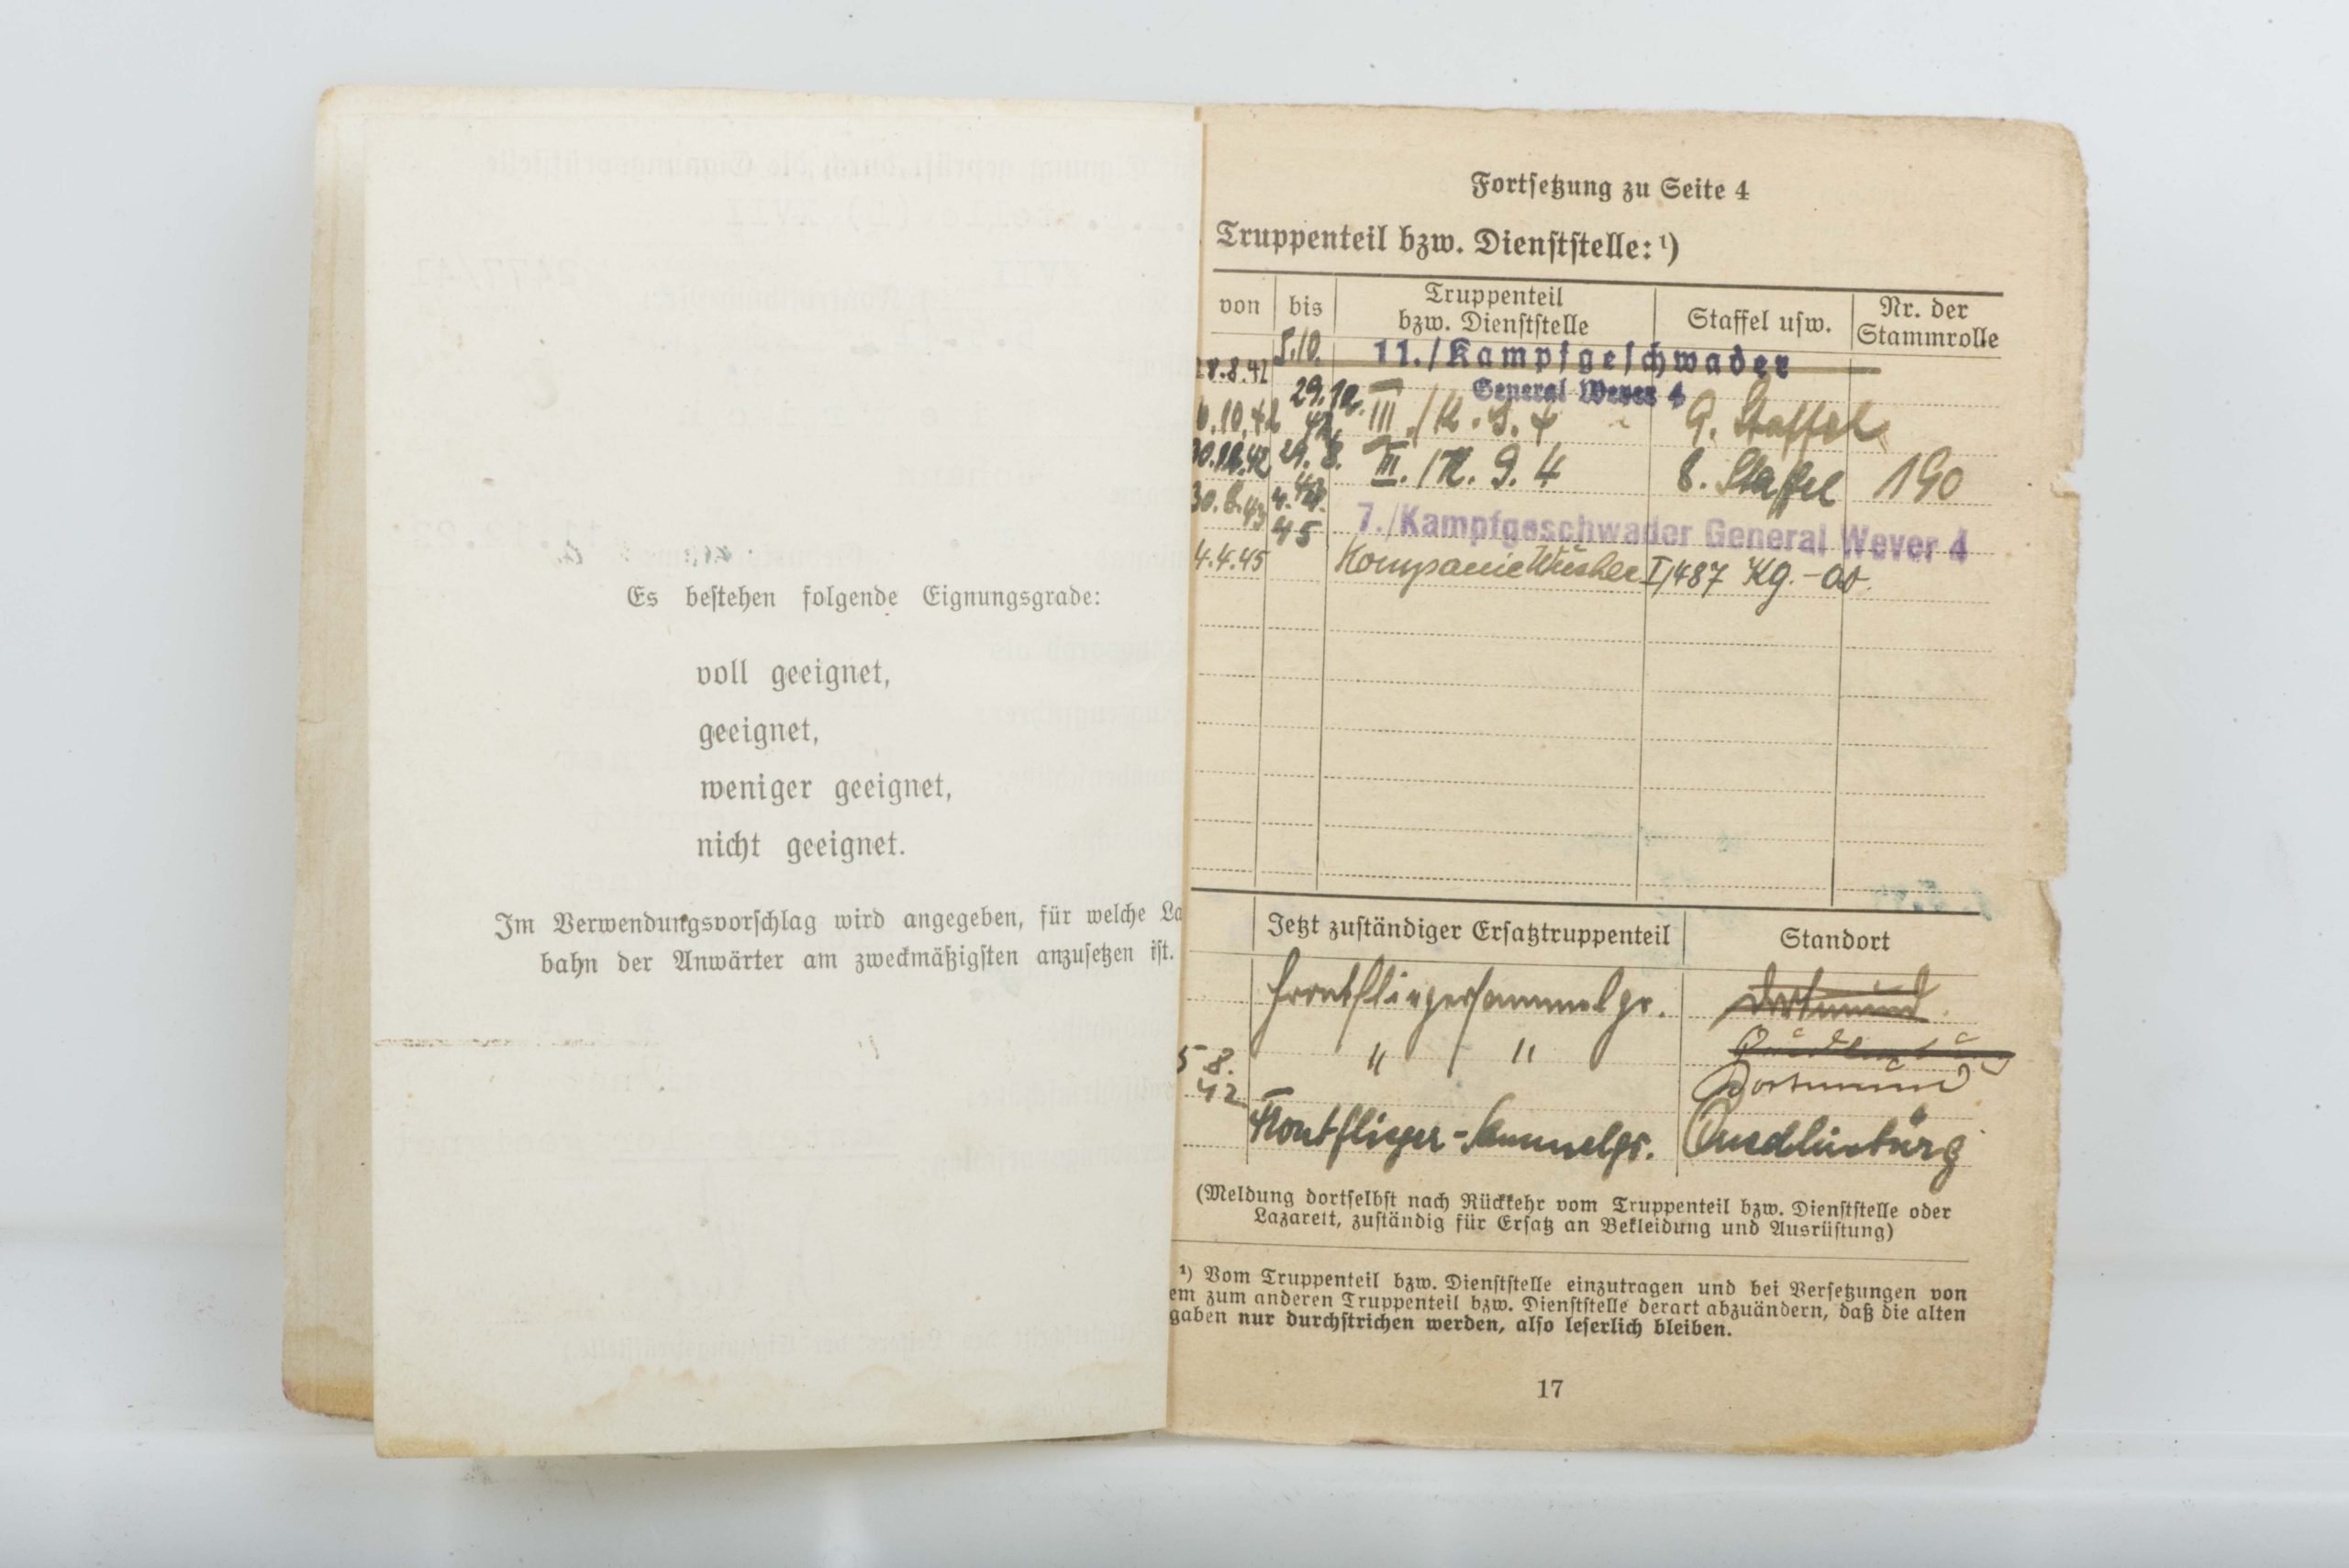 Es bestehen folgende Eignungsgrade:
voll geeignet,
geeignet,
weniger geeignet,
nicht geeignet.
Im Verwendungsvorschlag wird angegeben, für welche La
bahn der Anwärter am zweckmäßigsten anzusetzen ist.
Fortsetzung zu Seite 4
Truppenteil bzw. Dienststelle: ¹)
von bis Truppenteil bzw. Dienststelle Staffel usw. Nr. der Stammrolle
8.8.42 5.10. 11./Kampfgeschwader
General Wever 4
6.10.42 29.12. 42 III./K.G.4 9. Staffel
30.12.42 29.8. 43 III./K.G.4 8. Staffel 190
30.8.43 4.4. 45 7./Kampfgeschwader General Wever 4
4.4.45 Kompanie I/487 Kg.-
Jetzt zuständiger Ersatztruppenteil Standort
Frontfliegersammelgr. Dortmund
" " Quedlinburg
5 8. 42 Dortmund
Frontflieger-Sammelgr. Quedlinburg
(Meldung dortselbst nach Rückkehr vom Truppenteil bzw. Dienststelle oder
Lazarett, zuständig für Ersatz an Bekleidung und Ausrüstung)
¹) Vom Truppenteil bzw. Dienststelle einzutragen und bei Versetzungen von
em zum anderen Truppenteil bzw. Dienststelle derart abzuändern, daß die alten
gaben nur durchstrichen werden, also leserlich bleiben.
17